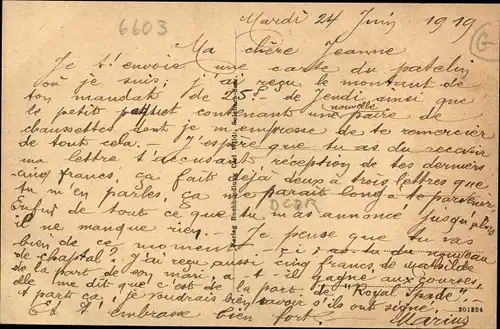 6603
Mardi 24 Juin 1919
G
Ma chère Jeanne
Je t'envoie une carte du patelin
où je suis; j'ai reçu le montant de
ton mandat de 25f. de Jeudi ainsi que
le petit paquet contenant une nouvelle paire de
chaussettes dont je m'empresse de te remercier
de tout cela. - J'espère que tu as du recevoir
ma lettre t'accusant réception de tes derniers
cinq francs, ça fait déjà deux à trois lettres que
tu m'en parles, ça me parait long à te parvenir
Enfin de tout ce que tu m'as annoncé jusqu'
DCDR
ne manque rien. - Je pense que tu vas
bien de ce moment as tu du nouveau
de Chaptal? J'ai reçu aussi cinq francs de Mathilde
de la part de son mari, a t-il gagné aux courses,
elle me dit que c'est de la part de Royal Spade.
part ça, je voudrais bien savoir s'ils ont signé.
201224
t'embrasse bien fort Marius
Verlag